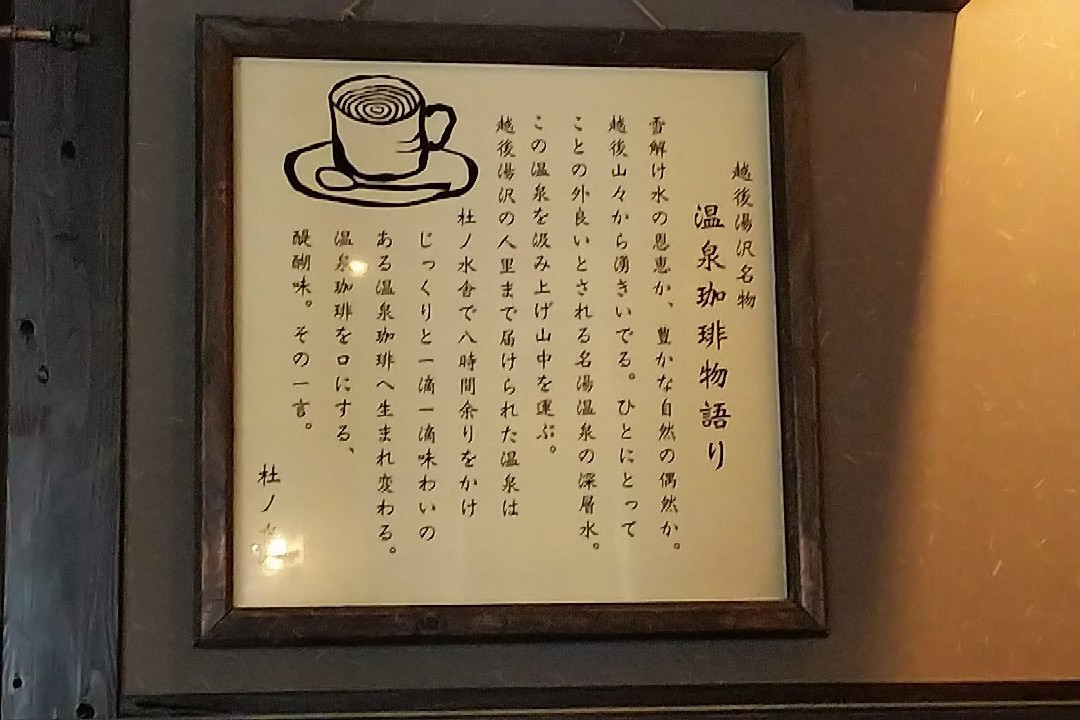 越後湯沢名物
温泉珈琲物語り
雪解け水の恩恵か、豊かな自然の偶然か。
越後山々から湧きいでる。ひとにとって
ことの外良いとされる名湯温泉の深層水。
この温泉を汲み上げ山中を運ぶ。
越後湯沢の人里まで届けられた温泉は
杜ノ水舎で八時間余りをかけ
じっくりと一滴一滴味わいの
ある温泉珈琲へ生まれ変わる。
温泉珈琲を口にする、
醍醐味。その一言。
杜ノ